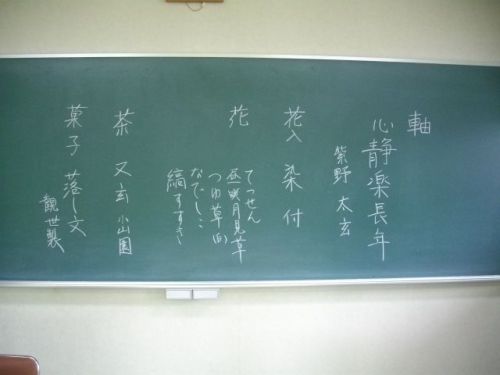 軸
心静楽長年
紫野 太玄
花入 染付
花
てっせん
昼咲月見草
つゆ草(白)
なでしこ
縞すすき
茶 又玄 小山園
菓子 落し文
観世製